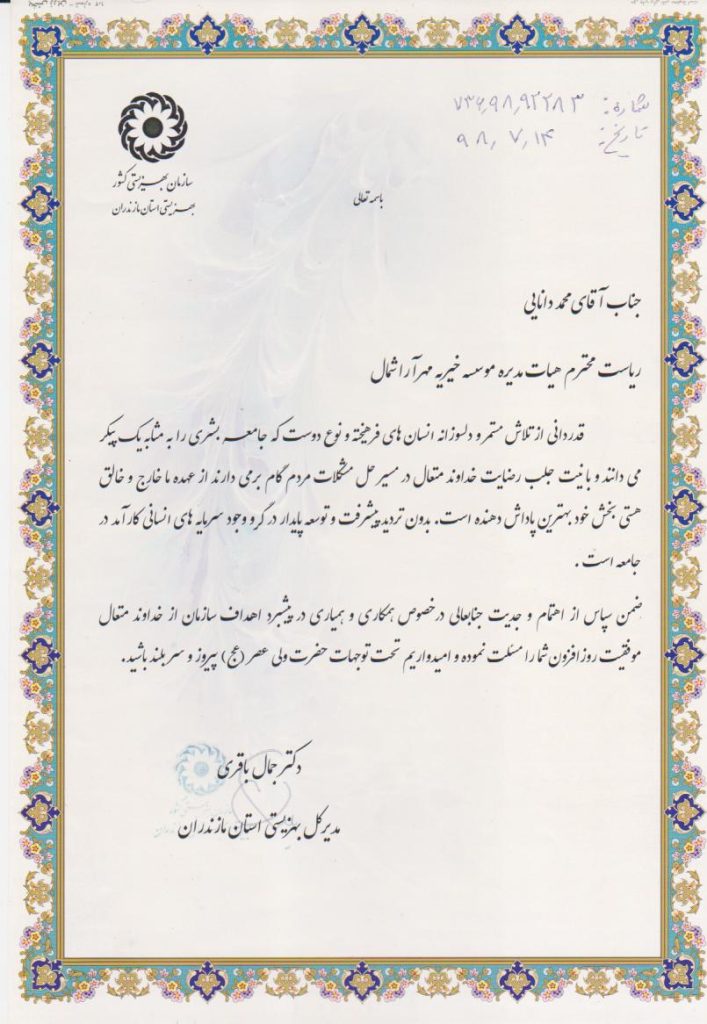 شماره: ۷۳۶٫۹۸٫۹۲۲۸۳
تاریخ: ۹۸٫ ۷٫ ۱۴
سازمان بهزیستی کشور
بهزیستی استان مازندران
باسمه تعالی
جناب آقای محمد دانایی
ریاست محترم هیات مدیره موسسه خیریه مهرآرا شمال
قدردانی از تلاش مستمر و دلسوزانه انسان های فرهیخته و نوع دوست که جامعه بشری را به مثابه یک پیکر
می دانند و با نیت جلب رضایت خداوند متعال در مسیر حل مشکلات مردم گام برمی دارند از عهده ما خارج و خالق
هستی بخش خود بهترین پاداش دهنده است. بدون تردید پیشرفت و توسعه پایدار در گرو وجود سرمایه های انسانی کارآمد در
جامعه است .
ضمن سپاس از اهتمام و جدیت جنابعالی درخصوص همکاری و همیاری در پیشبرد اهداف سازمان از خداوند متعال
موفقیت روزافزون شما را مسئلت نموده و امیدواریم تحت توجهات حضرت ولی عصر (عج) پیروز و سربلند باشید.
دکتر جمال باقری
مدیرکل بهزیستی استان مازندران